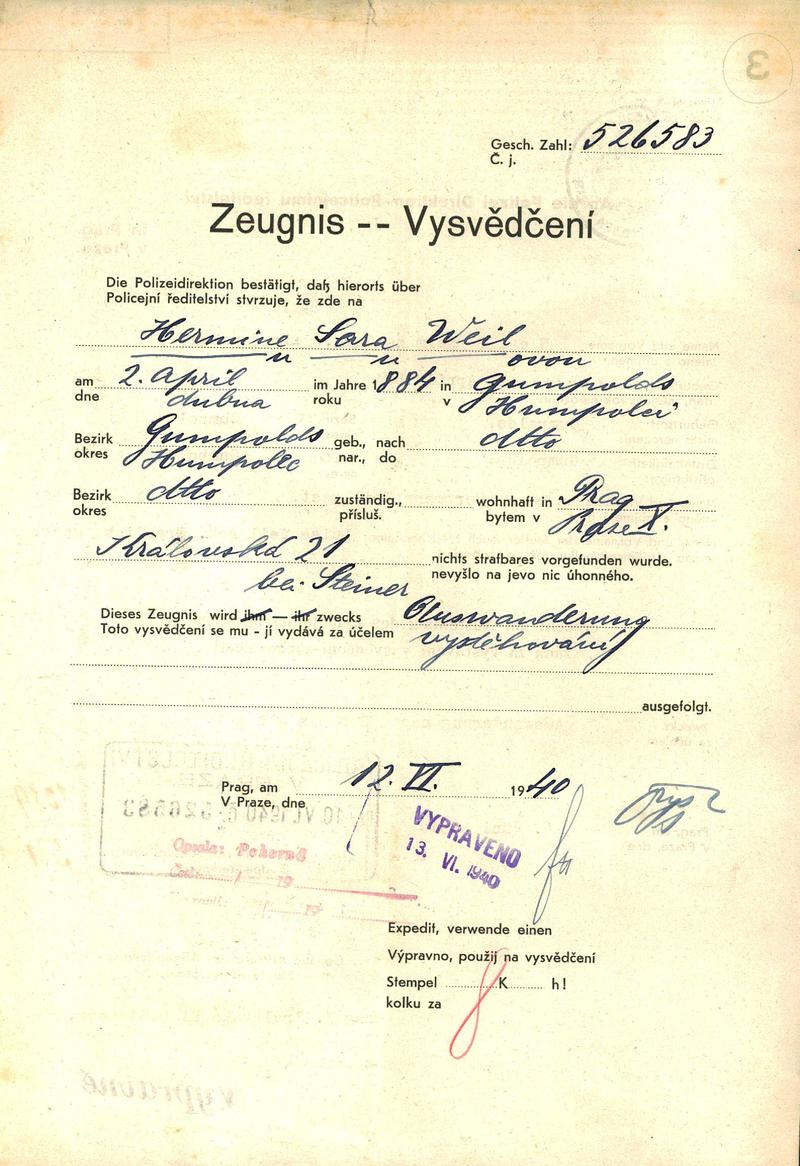 3
Gesch. Zahl: 526583
Č. j.
Zeugnis -- Vysvědčení
Die Polizeidirektion bestätigt, daß hierorts über
Policejní ředitelství stvrzuje, že zde na
Hermine Sara Weil
u u ovou
am 2. April im Jahre 1884 in Gumpolds
dne dubna roku v Humpolci
Bezirk Gumpolds geb., nach dtto
okres Humpolec nar., do
Bezirk dtto zuständig., wohnhaft in Prag
okres přísluš. bytem v Praze X.
Královská 21 nichts strafbares vorgefunden wurde.
bei Steiner nevyšlo na jevo nic úhonného.
Dieses Zeugnis wird ihm — ihr zwecks Auswanderung
Toto vysvědčení se mu - jí vydává za účelem vystěhování
ausgefolgt.
Prag, am 12. VI. 1940
V Praze, dne
VYPRAVENO
13. VI. 1940
10 VI 1940 č. 526583
Opsala: Pokorná
19
Expedit, verwende einen
Výpravno, použij na vysvědčení
Stempel K h!
kolku za 8
výpravně